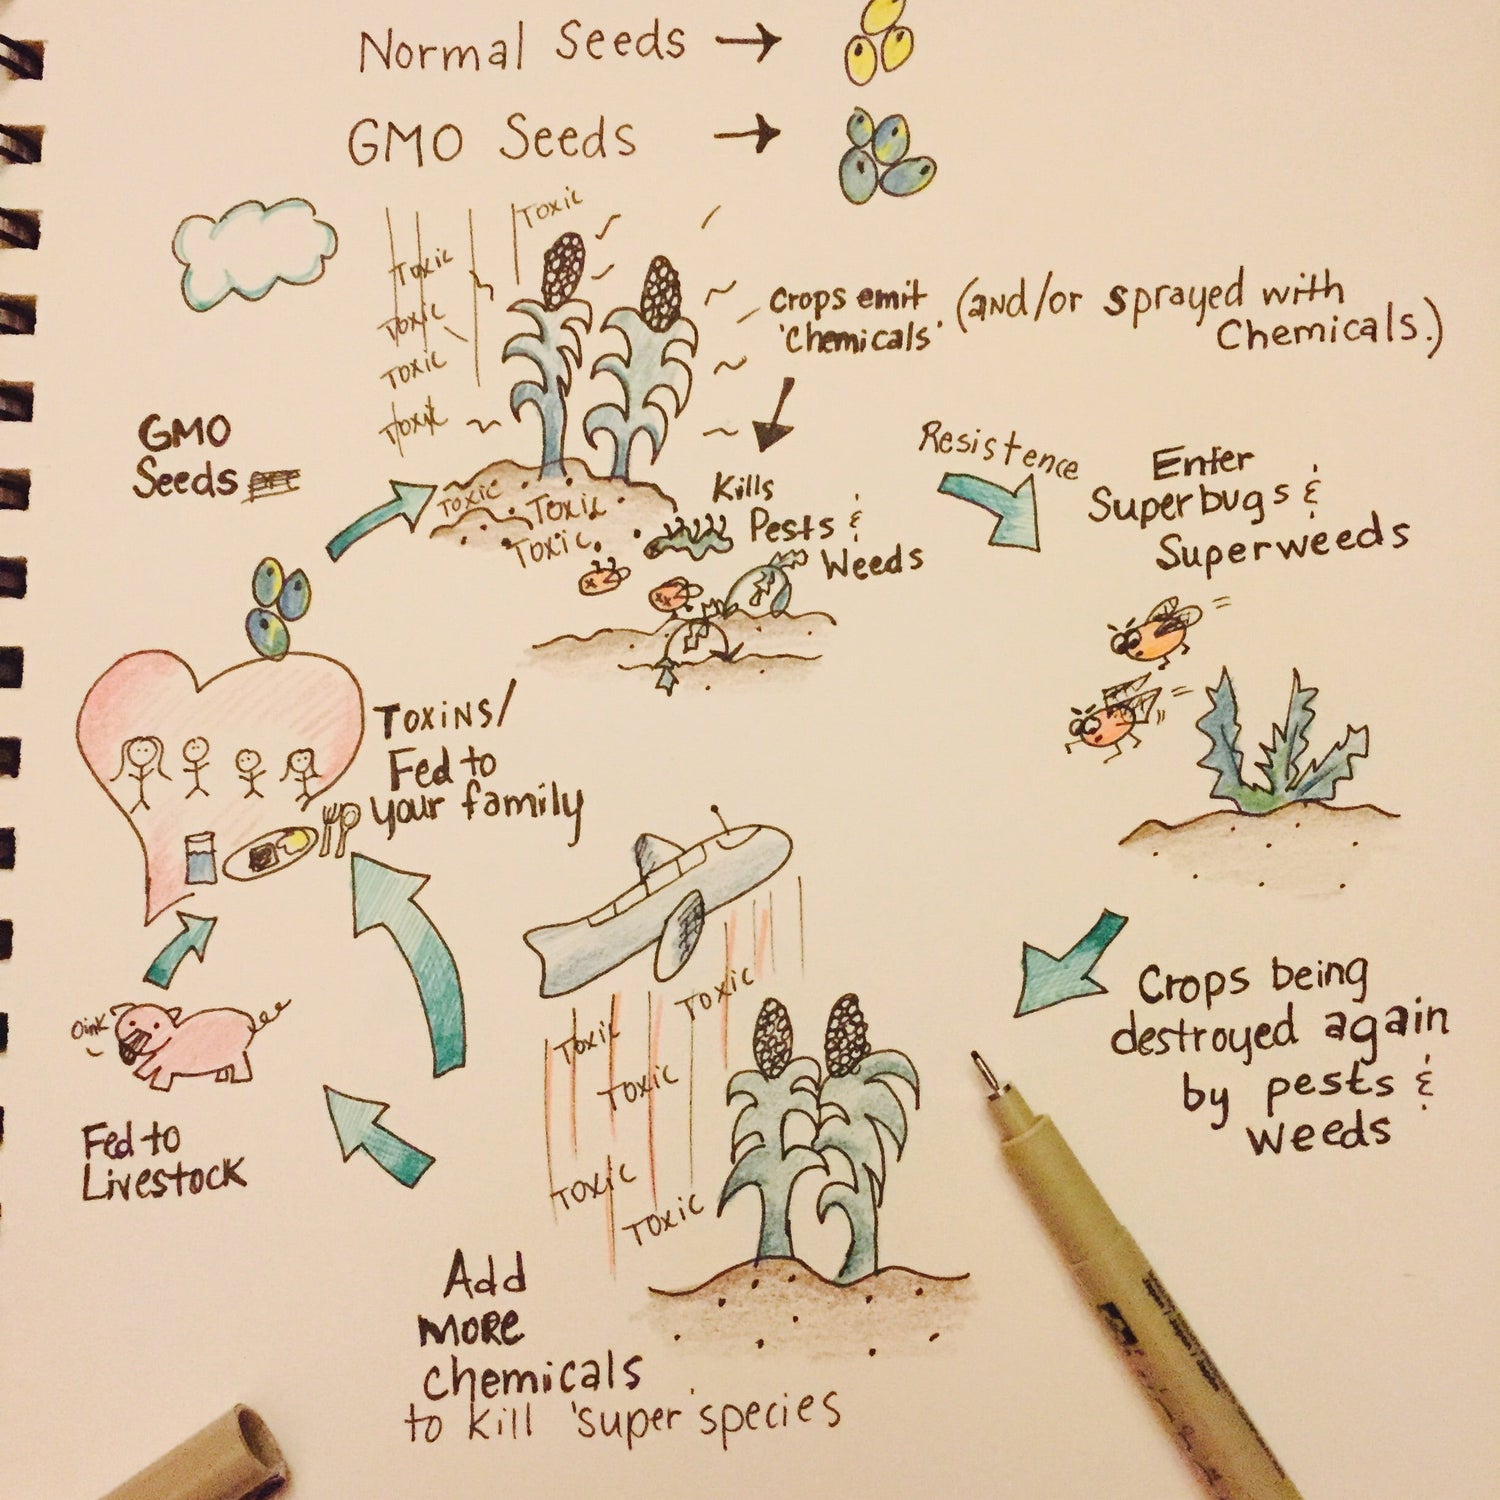 Normal Seeds →
GMO Seeds →
Toxic
Toxic
Toxic
Toxic
Toxic
Crops emit (and/or sprayed with
'Chemicals' Chemicals.)
GMO
Seeds
Toxic
Toxic
Toxic
Kills
Pests &
Weeds
Resistence
Enter
Superbugs &
Superweeds
Toxins/
Fed to
your family
Crops being
destroyed again
by pests &
weeds
Toxic
Toxic
Toxic
Toxic
Toxic
Oink
Fed to
Livestock
Add
more
chemicals
to kill 'super' species